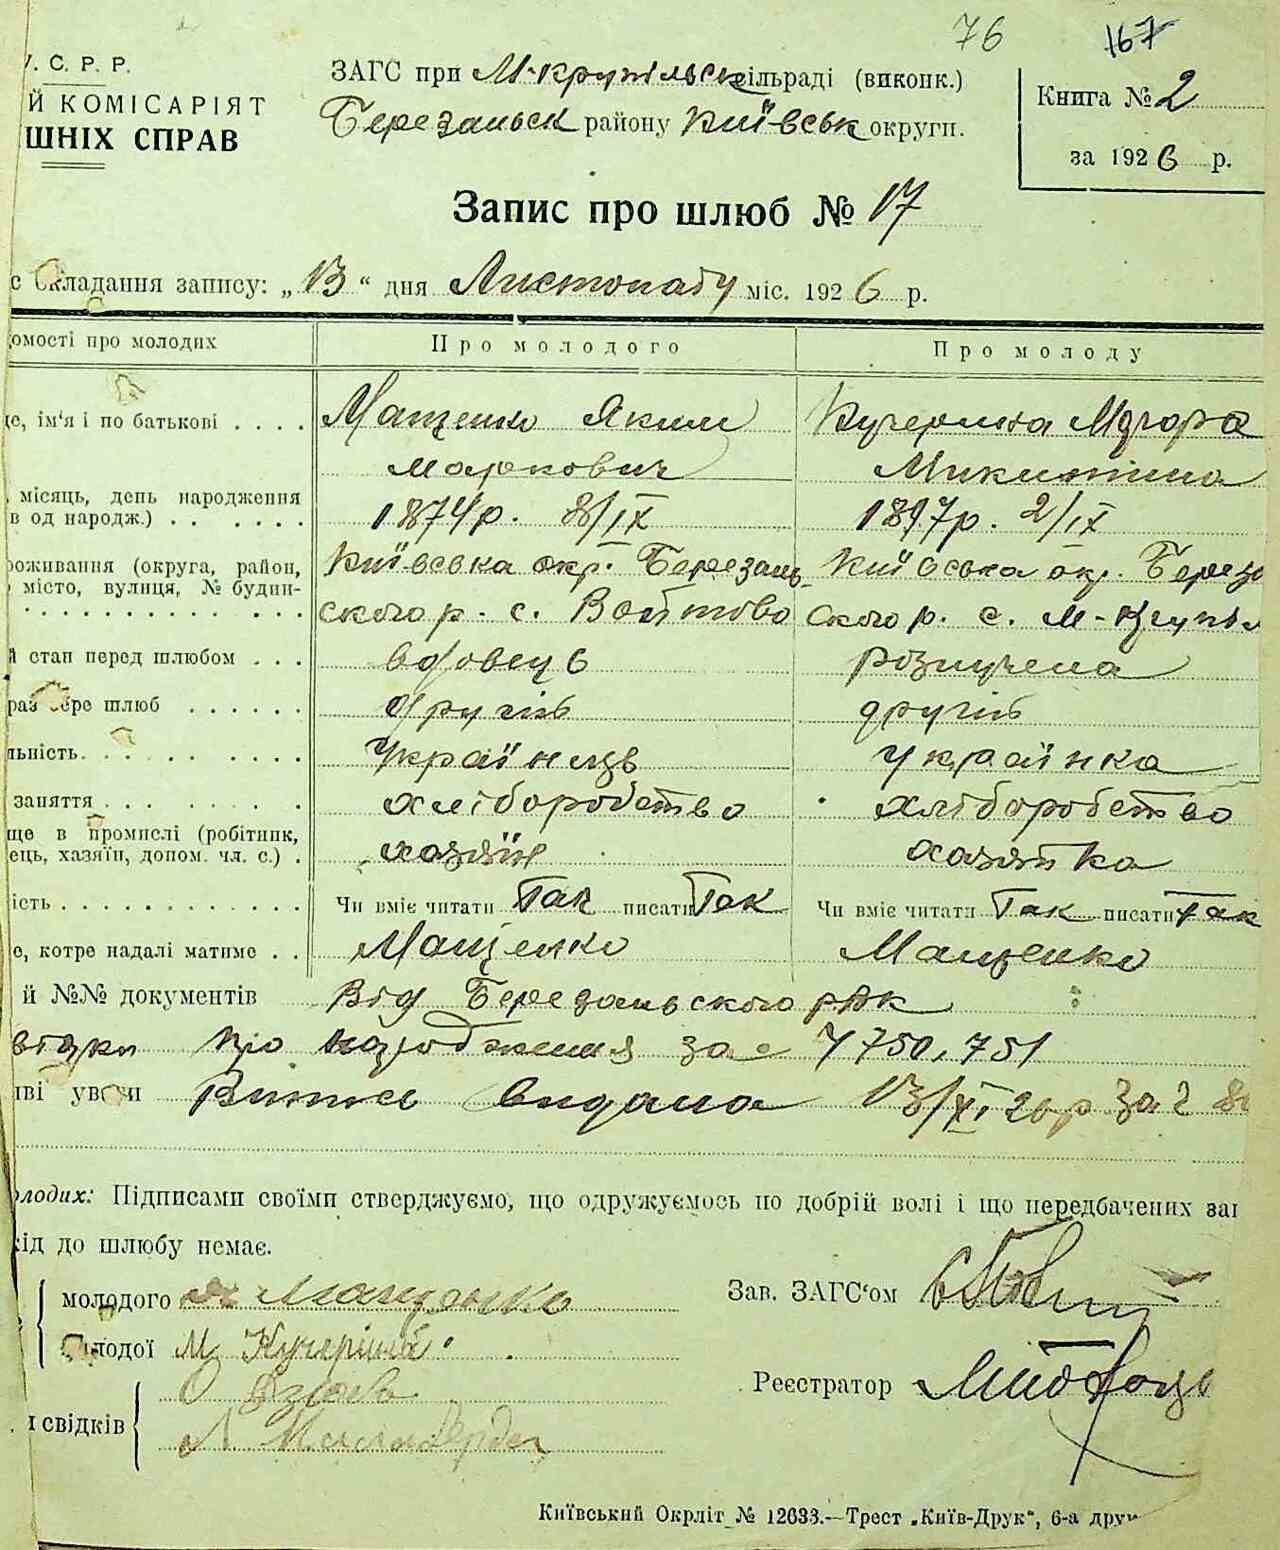 76 167
У. С. Р. Р.
Й КОМІСАРІЯТ
ШНІХ СПРАВ
ЗАГС при М-крупільск сільраді (виконк.)
Березанськ району Київськ округи.
Книга № 2
за 1926 р.
Запис про шлюб № 17
с складання запису: „13“ дня Листопаду міс. 1926 р.
омості про молодих Про молодого Про молоду
це, ім'я і по батькові . . . . Мащенко Яким Кучерина
Маркович Микитина
. місяць, день народження
в од народж.) . . . . . . 1874 р. 8/IX 1897 р. 2/IX
роживання (округа, район, Київська окр. Березань- Київська окр. Берез
місто, вулиця, № будин- ского р. с. Войтово ского р. с. М-Крупіл
й стан перед шлюбом . . . вдовець розлучена
раз бере шлюб . . . . . . другий другий
льність. . . . . . . . . українець українка
заняття . . . . . . . . хліборобство хліборобство
ще в промислі (робітник,
ець, хазяїн, допом. чл. с.) . хазяїн хазяйка
ість . . . . . . . . . . . . Чи вміє читати Так писати Так Чи вміє читати Так писати Так
е, котре надалі матиме . . Мащенко Мащенко
й №№ документів Від Березаньського РВК
відки про народження за № 750, 751
иві уваги Витяг видана 13/XI 26 р за №
олодих: Підписами своїми стверджуємо, що одружуємось по добрій волі і що передбачених заг
кід до шлюбу немає.
молодого Я Мащенко
молодої М Кучеріна
Зав. ЗАГС'ом
Реєстратор
и свідків
Київський Окрліт № 12633.—Трест „Київ-Друк“, 6-а друк